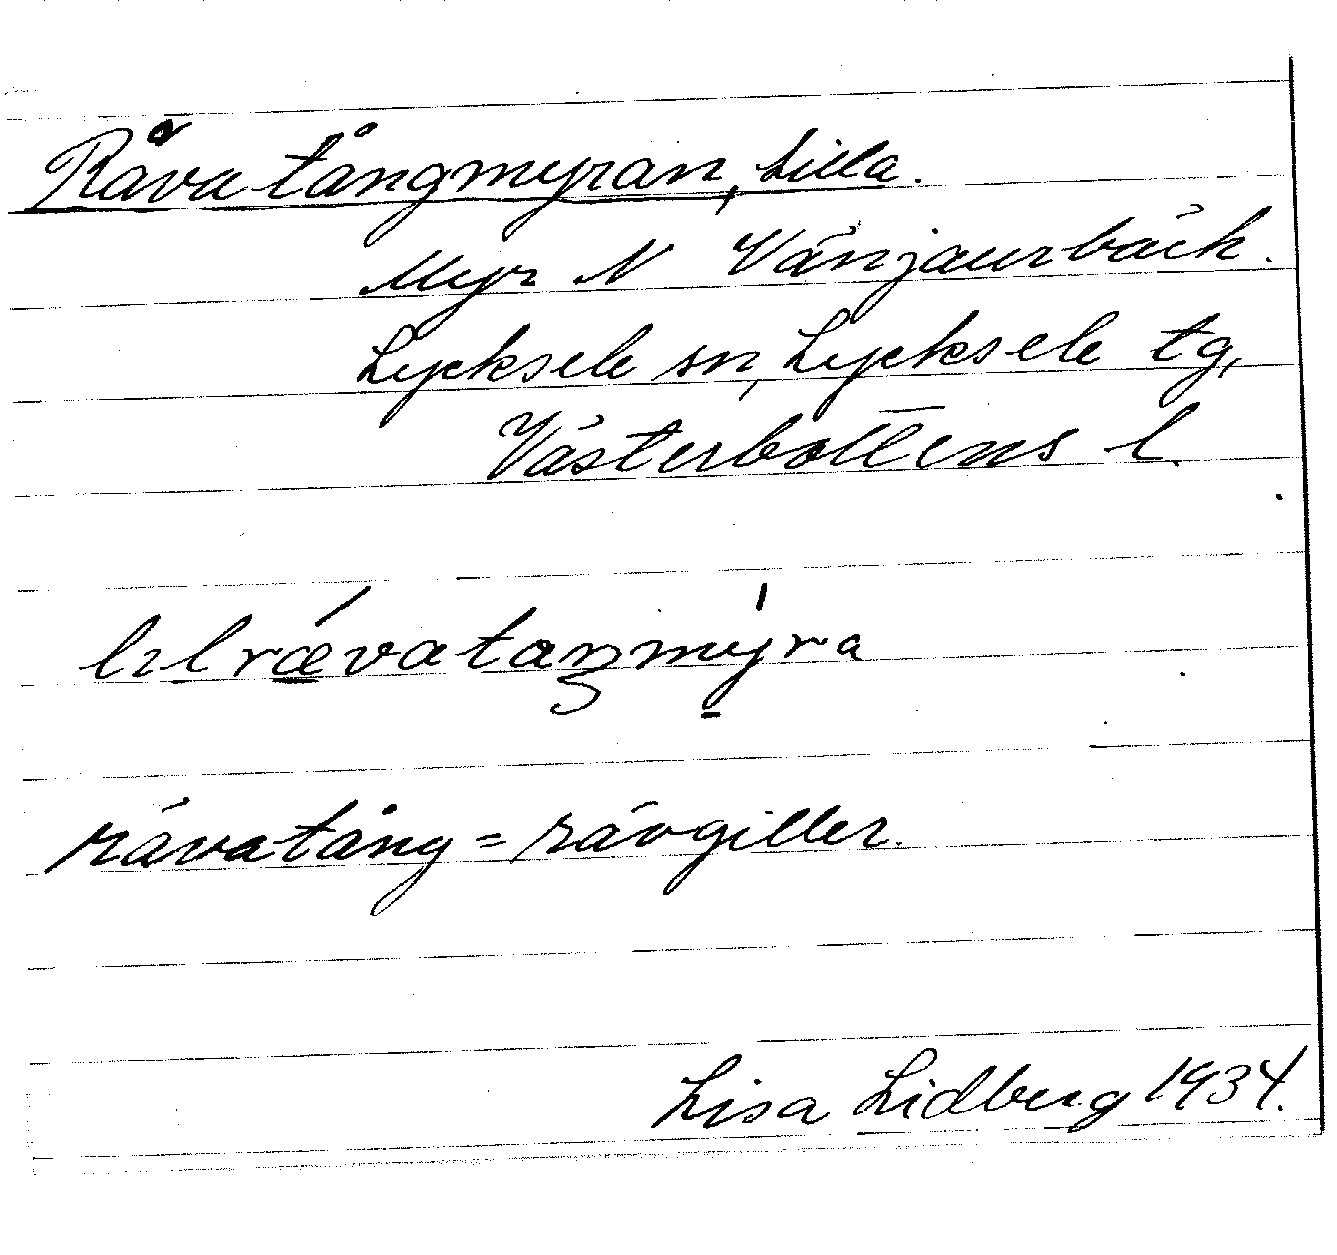 Råvatångmyran, Lilla.
Myr N Vänjaurbäck.
Lycksele sn, Lycksele tg,
Västerbottens l.
lɪlrǽvataŋmýra
rävatång = rävgiller.
Lisa Lidberg 1934.